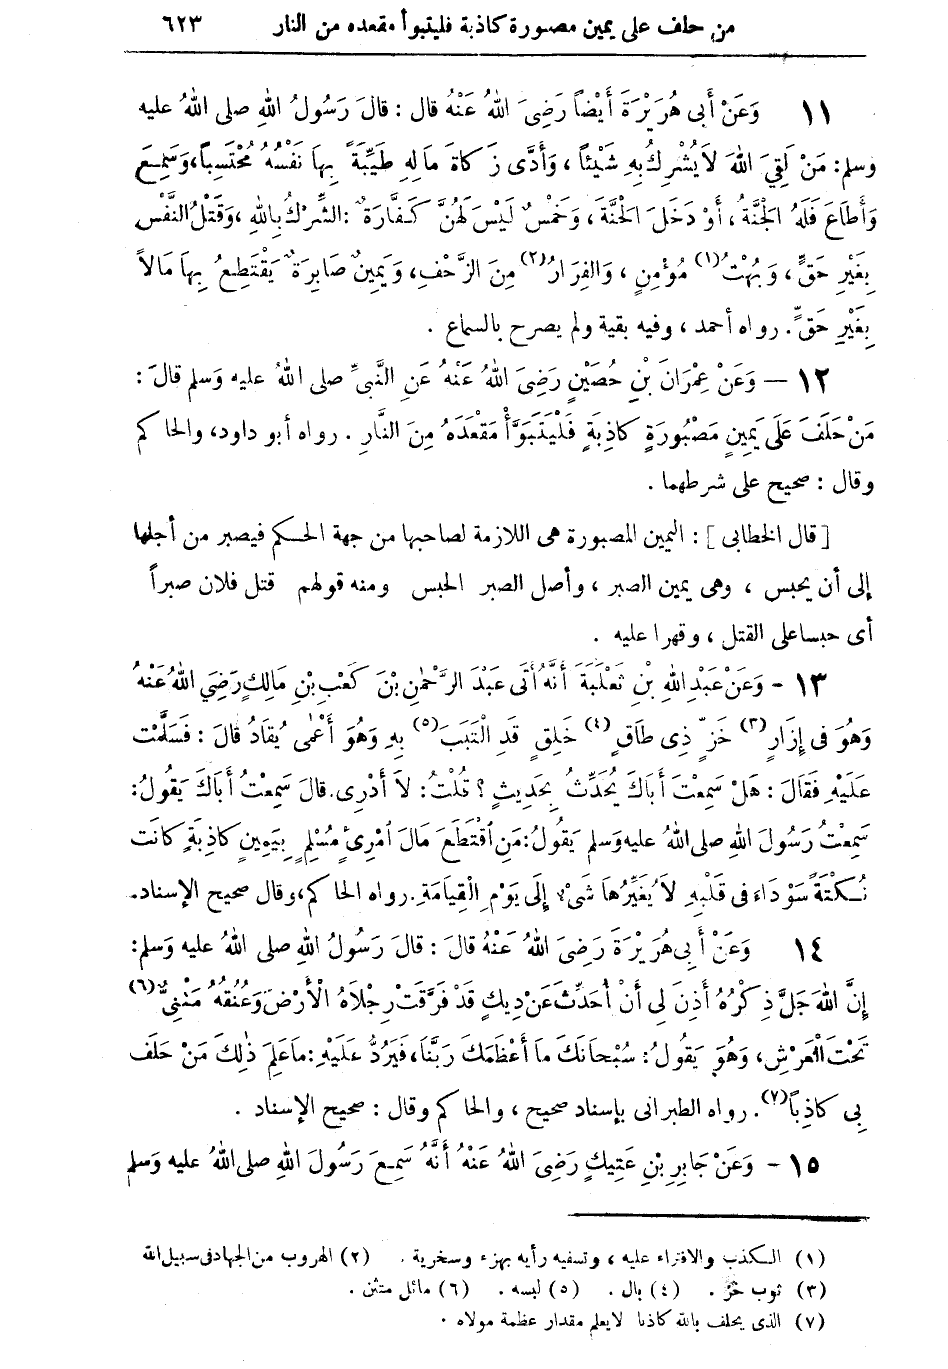 من حلف على يمين مصبورة كاذبة فليتبوأ مقعده من النار ٦٢٣
١١ وَعَنْ أَبِى هُرَيْرَةَ أَيْضاً رَضِىَ اللهُ عَنْهُ قال : قالَ رَسُولُ اللهِ صلى اللهُ عليه
وسلم: مَنْ لَقِيَ اللهَ لاَ يُشْرِكُ بِهِ شَيْئاً ، وَأَدَّى زَكاةَ مَالِهِ طَيِّبَةً بِهَا نَفْسُهُ مُحْتَسِباً، وَسَمِعَ
وَأَطَاعَ فَلَهُ الْجَنَّةُ ، أَوْ دَخَلَ الْجَنَّةَ ، وَخَمْسٌ لَيْسَ لَهُنَّ كَفَّارَةٌ : الشِّرْكُ بِاللهِ ، وَقَتْلُ النَّفْسِ
بِغَيْرِ حَقٍّ ، وَبُهْتُ (١) مُؤْمِنٍ ، وَالْفِرَارُ (٢) مِنَ الزَّحْفِ، وَيَمِينٌ صَابِرَةٌ يَقْتَطِعُ بِهَا مَالاً
بِغَيْرِ حَقٍّ . رواه أحمد ، وفيه بقية ولم يصرح بالسماع .
١٢ — وَعَنْ عِمْرَانَ بْنِ حُصَيْنٍ رَضِىَ اللهُ عَنْهُ عَنِ النَّبِىِّ صلى اللهُ عليه وَسلم قالَ :
مَنْ حَلَفَ عَلَى يَمِينٍ مَصْبُورَةٍ كَاذِبَةٍ فَلْيَتَبَوَّأْ مَقْعَدَهُ مِنَ النَّارِ . رواه أبو داود، والحاكم
وقال : صحيح على شرطهما .
[ قال الخطابى ] : اليمين المصبورة هى اللازمة لصاحبها من جهة الحكم فيصبر من أجلها
إلى أن يحبس ، وهى يمين الصبر ، وأصل الصبر الحبس ومنه قولهم قتل فلان صبراً
أى حبسا على القتل ، وقهرا عليه .
١٣ - وَعَنْ عَبْدِ اللهِ بْنِ ثَعْلَبَةَ أَنَّهُ أَتَى عَبْدَ الرَّحْمٰنِ بْنَ كَعْبِ بْنِ مَالِكٍ رَضِيَ اللهُ عَنْهُ
وَهُوَ فى إِزَارٍ (٣) خَزٍّ ذِى طَاقٍ (٤) خَلِقٍ قَدِ الْتَبَبَ (٥) بِهِ وَهُوَ أَعْمٰى يُقَادُ قالَ : فَسَلَّمْتُ
عَلَيْهِ فَقَالَ : هَلْ سَمِعْتَ أَبَاكَ يُحَدِّثُ بِحَدِيثٍ ؟ قُلْتُ : لاَ أَدْرِى. قالَ سَمِعْتُ أَبَاكَ يَقُولُ:
سَمِعْتُ رَسُولَ اللهِ صلى اللهُ عليه وَسلم يَقُولُ: مَنِ اقْتَطَعَ مَالَ امْرِئٍ مُسْلِمٍ بِيَمِينٍ كَاذِبَةٍ كانَت
نُكْتَةً سَوْدَاءَ فى قَلْبِهِ لاَ يُغَيِّرُهَا شَىْءٌ إِلَى يَوْمِ الْقِيَامَةِ. رواه الحاكم، وقال صحيح الإسناد.
١٤ وَعَنْ أَبِى هُرَيْرَةَ رَضِىَ اللهُ عَنْهُ قالَ : قالَ رَسُولُ اللهِ صلى اللهُ عليه وَسلم:
إِنَّ اللهَ جَلَّ ذِكْرُهُ أَذِنَ لِى أَنْ أُحَدِّثَ عَنْ دِيكٍ قَدْ فَرَّقَتْ رِجْلاَهُ الْأَرْضَ وَعُنُقُهُ مَثْنِىٌّ (٦)
تَحْتَ الْعَرْشِ، وَهُوَ يَقُولُ : سُبْحَانَكَ ما أَعْظَمَكَ رَبَّنَا، فَيَرُدُّ عَلَيْهِ : ما عَلِمَ ذٰلِكَ مَنْ حَلَفَ
بِى كَاذِباً (٧). رواه الطبرانى بإسناد صحيح ، والحاكم وقال : صحيح الإسناد .
١٥ - وَعَنْ جَابِرِ بْنِ عَتِيكٍ رَضِىَ اللهُ عَنْهُ أَنَّهُ سَمِعَ رَسُولَ اللهِ صلى اللهُ عليه وَسلم
(١) الكذب والافتراء عليه ، وتسفيه رأيه بهزء وسخرية . (٢) الهروب من الجهاد فى سبيل الله
(٣) ثوب خز . (٤) بال . (٥) لبسه . (٦) مائل متثن .
(٧) الذى يحلف بالله كاذبا لا يعلم مقدار عظمة مولاه .